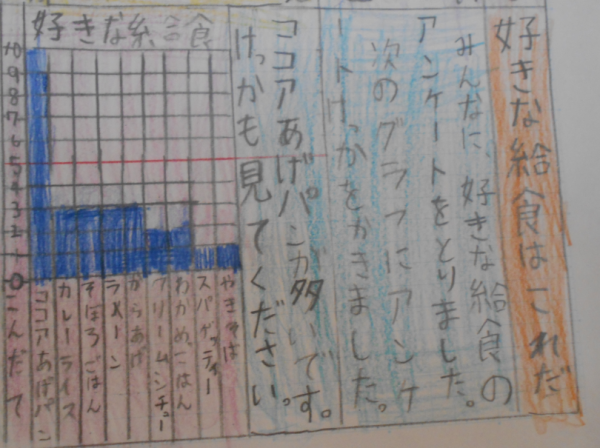 好きな給食はこれだ
みんなに、好きな給食の
アンケートをとりました。
次のグラフにアンケ
ートけっかをかきました。
ココアあげパンが多いです。
けっかも見てください。
好きな給食
10
9
8
7
6
5
4
3
2
1
0
こんだて
ココアあげパン
カレーライス
そぼろごはん
ラーメン
からあげ
クリームシチュー
わかめごはん
スパゲッティー
やきそば